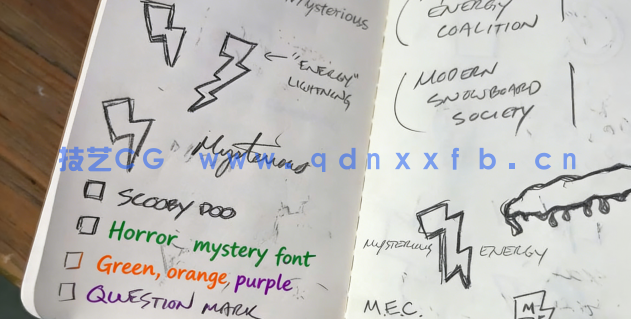 Mysterious
"ENERGY"
LIGHTNING
Mysterious
SCOOBY DOO
Horror mystery font
Green, orange, purple
QUESTION MARK
ENERGY
COALITION
MODERN
SNOWBOARD
SOCIETY
MYSTERIOUS ENERGY
M.E.C.
M
技艺CG www.qdnxxfb.cn